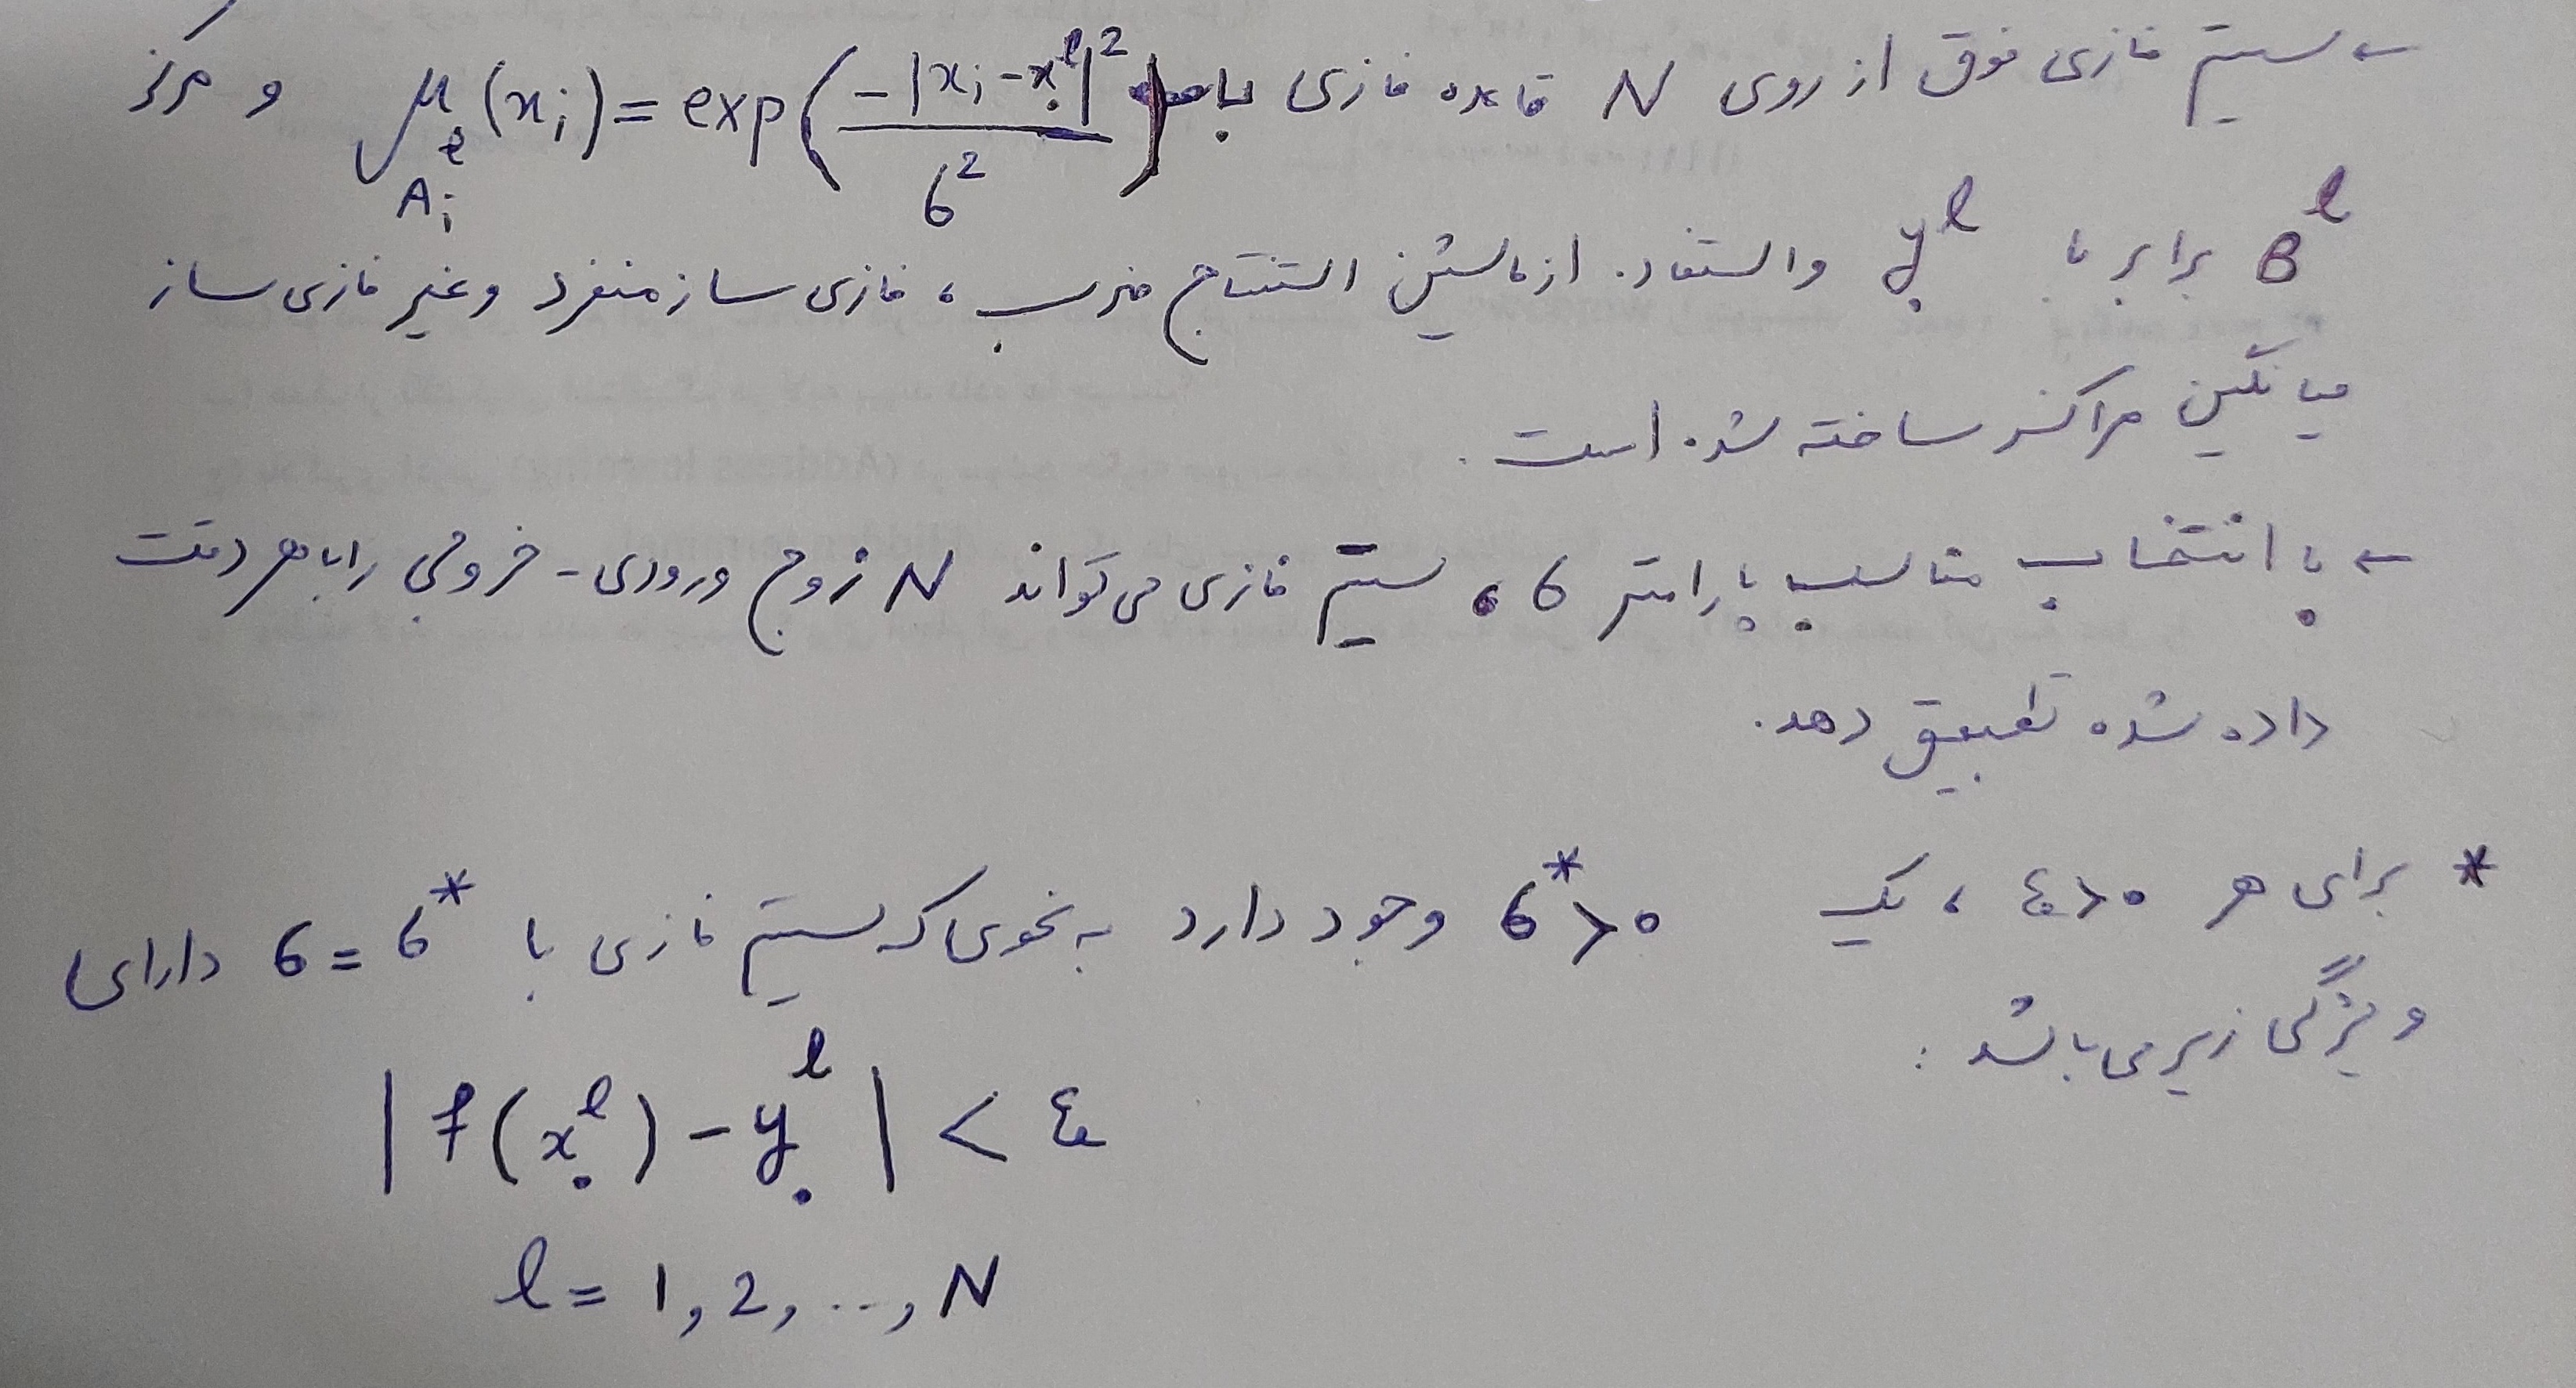 ← سیستم فازی فوق از روی N قاعده فازی با μ_{A_i^l}(x_i) = exp(-|x_i - x_0^l|^2 / σ^2) و مرکز
B^l برابر با y_0^l و استفاده از ماشین استنتاج ضرب، فازی ساز منفرد و غیر فازی ساز
میانگین مراکز ساخته شده است.
← با انتخاب مناسب پارامتر σ، سیستم فازی می تواند N زوج ورودی - خروجی را با هر دقت
داده شده تطبیق دهد.
* برای هر ε > 0، یک σ* > 0 وجود دارد به نحوی که سیستم فازی با σ = σ* دارای
ویژگی زیر می باشد:
|f(x_0^l) - y_0^l| < ε
l = 1, 2, ..., N